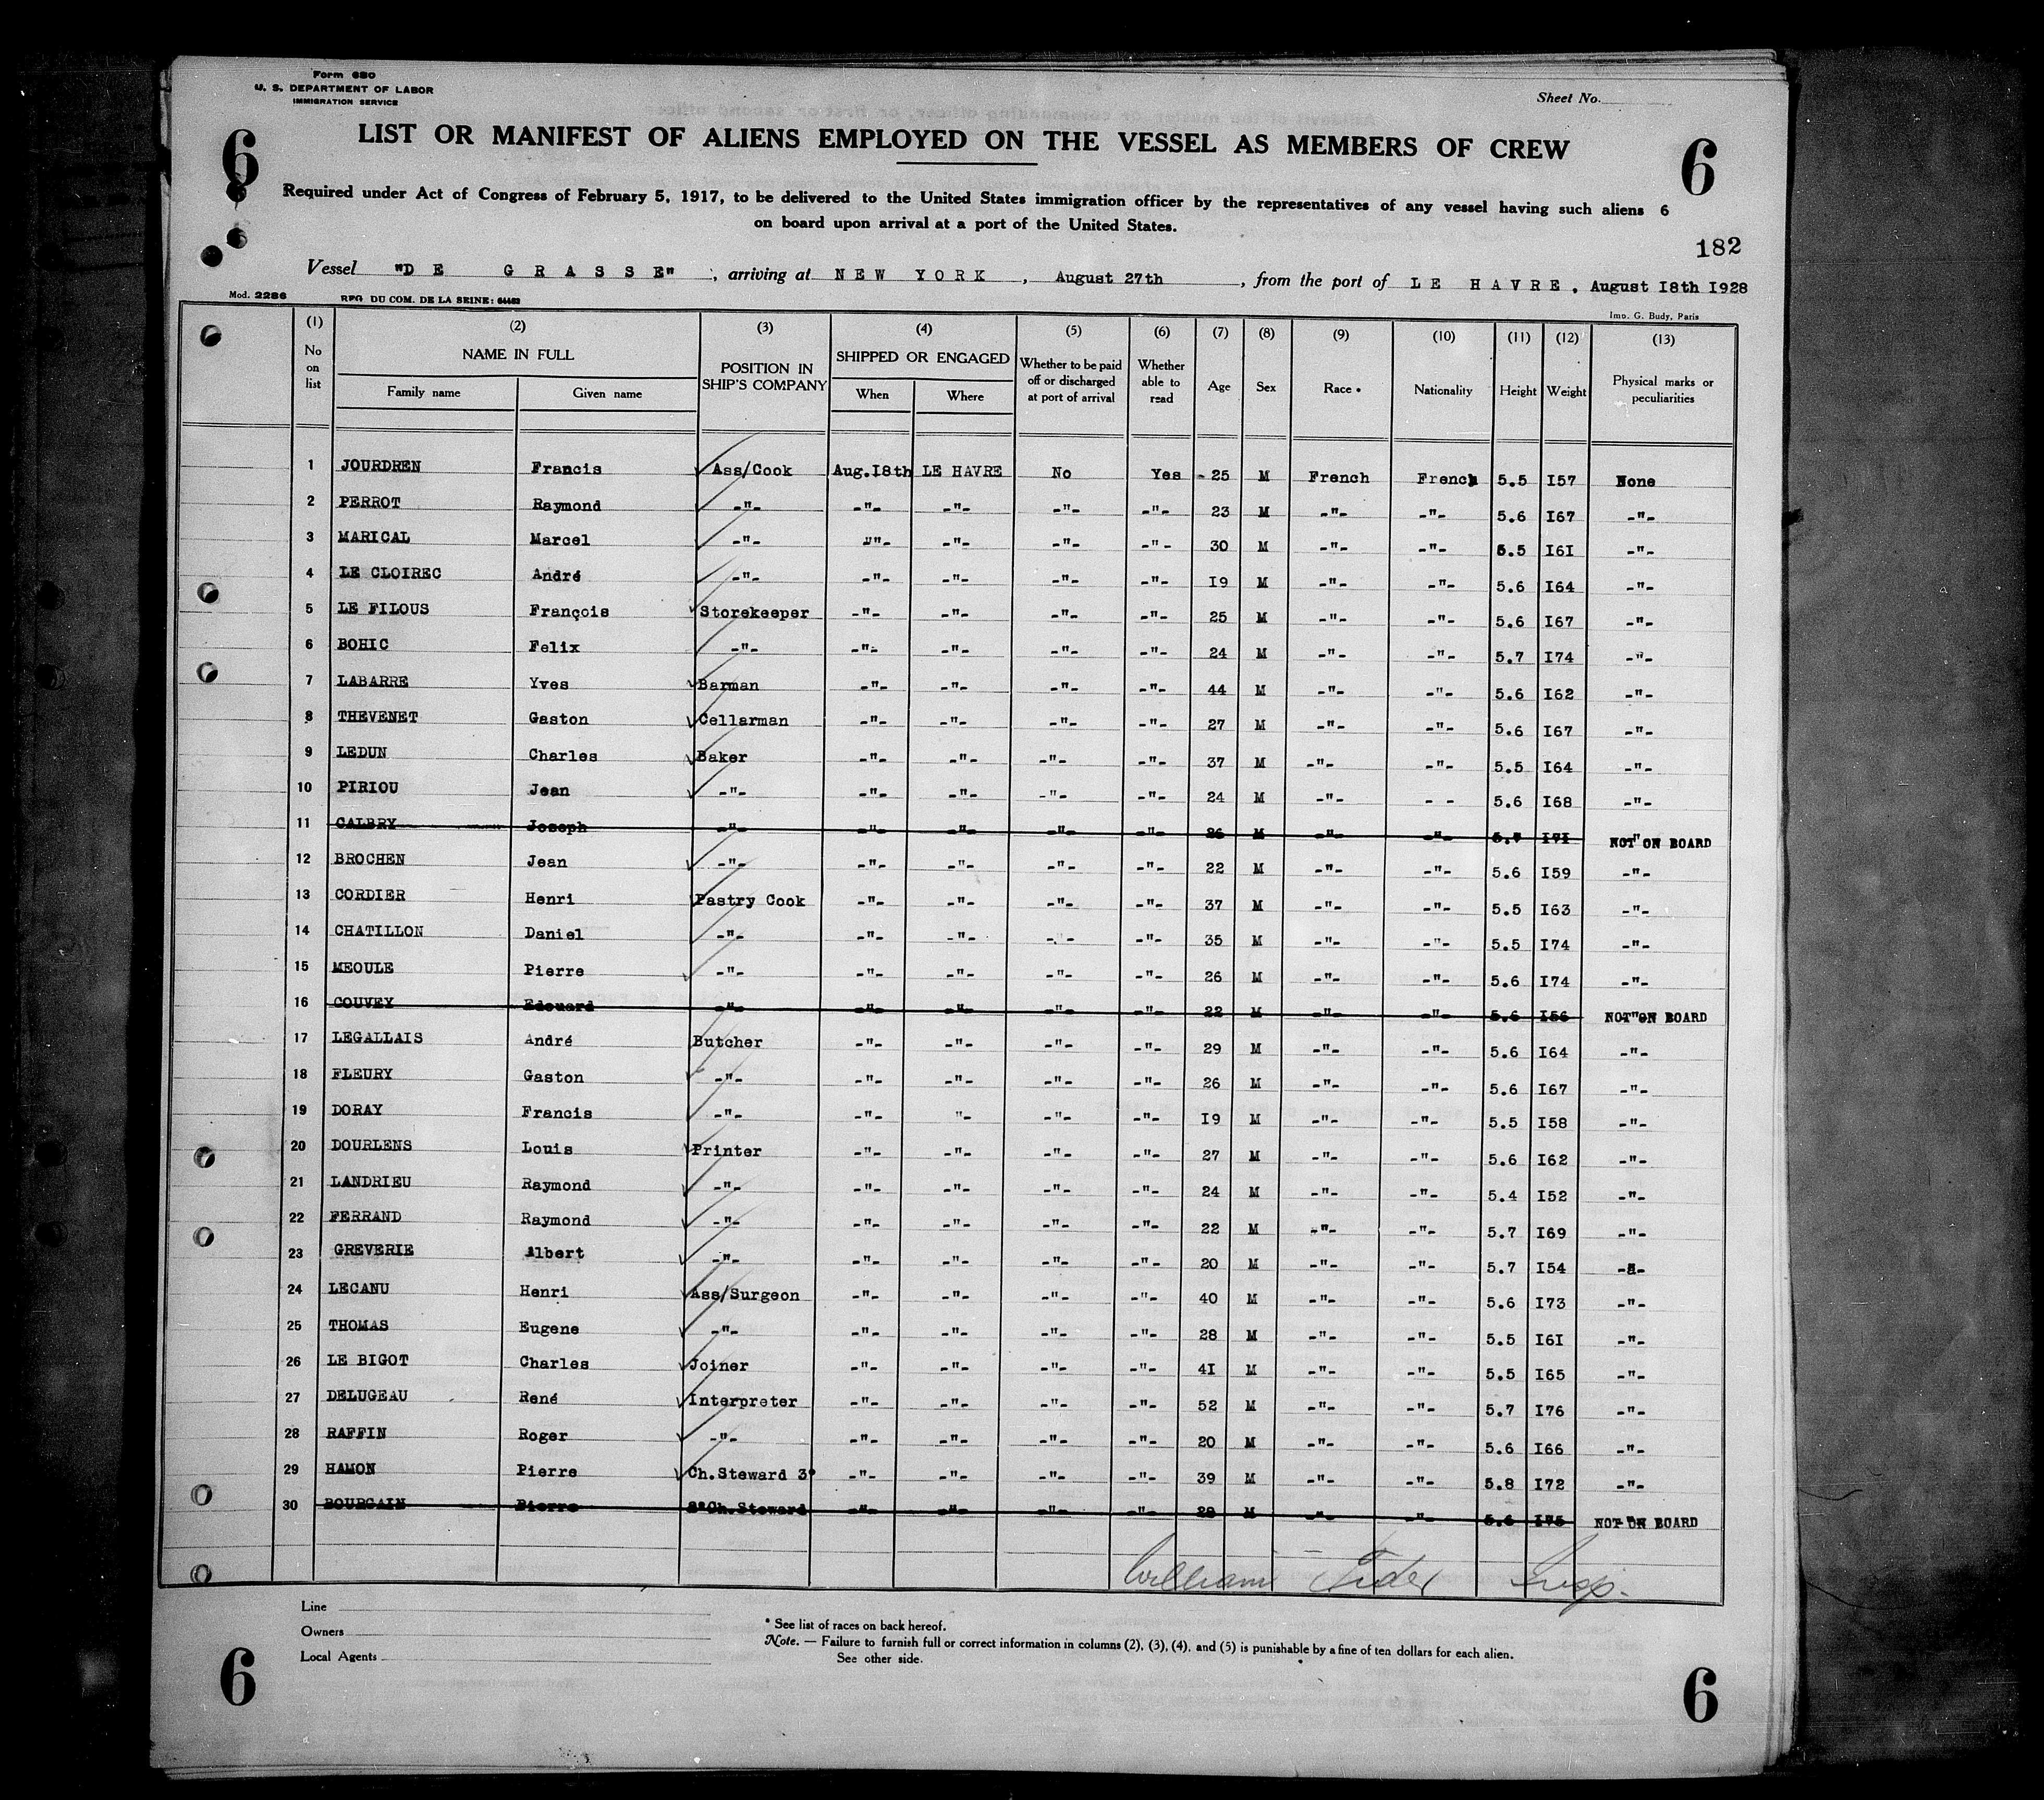 Form 680
U. S. DEPARTMENT OF LABOR
IMMIGRATION SERVICE
Sheet No.
6 LIST OR MANIFEST OF ALIENS EMPLOYED ON THE VESSEL AS MEMBERS OF CREW 6
Required under Act of Congress of February 5, 1917, to be delivered to the United States immigration officer by the representatives of any vessel having such aliens 6
on board upon arrival at a port of the United States.
182
Vessel "DE GRASSE", arriving at NEW YORK, August 27th, from the port of LE HAVRE. August I8th I928
Mod. 2286 REG. DU COM. DE LA SEINE: Imp. G. Budy, Paris
(1) (2) (3) (4) (5) (6) (7) (8) (9) (10) (11) (12) (13)
No on list NAME IN FULL Family name Given name POSITION IN SHIP'S COMPANY SHIPPED OR ENGAGED When Where Whether to be paid off or discharged at port of arrival Whether able to read Age Sex Race * Nationality Height Weight Physical marks or peculiarities
1 JOURDREN Francis Ass/Cook Aug.I8th LE HAVRE No Yes - 25 M French French 5.5 I57 None
2 PERROT Raymond -"- -"- -"- -"- -"- 23 M -"- -"- 5.6 I67 -"-
3 MARICAL Marcel -"- "- -"- -"- -"- 30 M -"- -"- 5.5 I6I -"-
4 LE CLOIREC André -"- -"- -"- -"- -"- I9 M -"- -"- 5.6 I64 -"-
5 LE FILOUS François Storekeeper -"- -"- -"- -"- 25 M -"- -"- 5.6 I67 -"-
6 BOHIC Felix -"- -"- -"- -"- -"- 24 M -"- -"- 5.7 I74 -"-
7 LABARRE Yves Barman -"- -"- -"- -"- 44 M -"- -"- 5.6 I62 -"-
8 THEVENET Gaston Cellarman -"- -"- -"- -"- 27 M -"- -"- 5.6 I67 -"-
9 LEDUN Charles Baker -"- -"- -"- -"- 37 M -"- -"- 5.5 I64 -"-
10 PIRIOU Jean -"- -"- -"- -"- -"- 24 M -"- - - 5.6 I68 -"-
11 CALBRY Joseph -"- -"- -"- -"- -"- 26 M -"- -"- 5.7 I7I NOT" ON BOARD
12 BROCHEN Jean -"- -"- -"- -"- -"- 22 M -"- -"- 5.6 I59 -"-
13 CORDIER Henri Pastry Cook -"- -"- -"- -"- 37 M -"- -"- 5.5 I63 -"-
14 CHATILLON Daniel -"- -"- -"- -"- -"- 35 M -"- -"- 5.5 I74 -"-
15 MEOULE Pierre -"- -"- -"- -"- -"- 26 M -"- -"- 5.6 I74 -"-
16 COUVEY Edouard -"- -"- -"- -"- -"- 22 M -"- -"- 5.6 I56 NOT"ON BOARD
17 LEGALLAIS André Butcher -"- -"- -"- -"- 29 M -"- -"- 5.6 I64 -"-
18 FLEURY Gaston -"- -"- -"- -"- -"- 26 M -"- -"- 5.6 I67 -"-
19 DORAY Francis -"- -"- "- -"- -"- I9 M -"- -"- 5.5 I58 -"-
20 DOURLENS Louis Printer -"- -"- -"- -"- 27 M -"- -"- 5.6 I62 -"-
21 LANDRIEU Raymond -"- -"- -"- -"- -"- 24 M -"- -"- 5.4 I52 -"-
22 FERRAND Raymond -"- -"- -"- -"- -"- 22 M -"- -"- 5.7 I69 -"-
23 GREVERIE Albert -"- -"- -"- -"- -"- 20 M -"- -"- 5.7 I54 -"-
24 LECANU Henri Ass/Surgeon -"- -"- -"- -"- 40 M -"- -"- 5.6 I73 -"-
25 THOMAS Eugene -"- -"- -"- -"- -"- 28 M -"- -"- 5.5 I6I -"-
26 LE BIGOT Charles Joiner -"- -"- -"- -"- 4I M -"- -"- 5.5 I65 -"-
27 DELUGEAU René Interpreter -"- -"- -"- -"- 52 M -"- -"- 5.7 I76 -"-
28 RAFFIN Roger -"- -"- -"- -"- -"- 20 M -"- -"- 5.6 I66 -"-
29 HAMON Pierre Ch.Steward 3° -"- -"- -"- -"- 39 M -"- -"- 5.8 I72 -"-
30 BOURGAIN Pierre 2°Ch.Steward -"- -"- -"- -"- 28 M -"- -"- 5.6 I75 NOT"ON BOARD
William Insp.
Line
Owners
Local Agents
* See list of races on back hereof.
Note. — Failure to furnish full or correct information in columns (2), (3), (4), and (5) is punishable by a fine of ten dollars for each alien.
See other side.
6 6